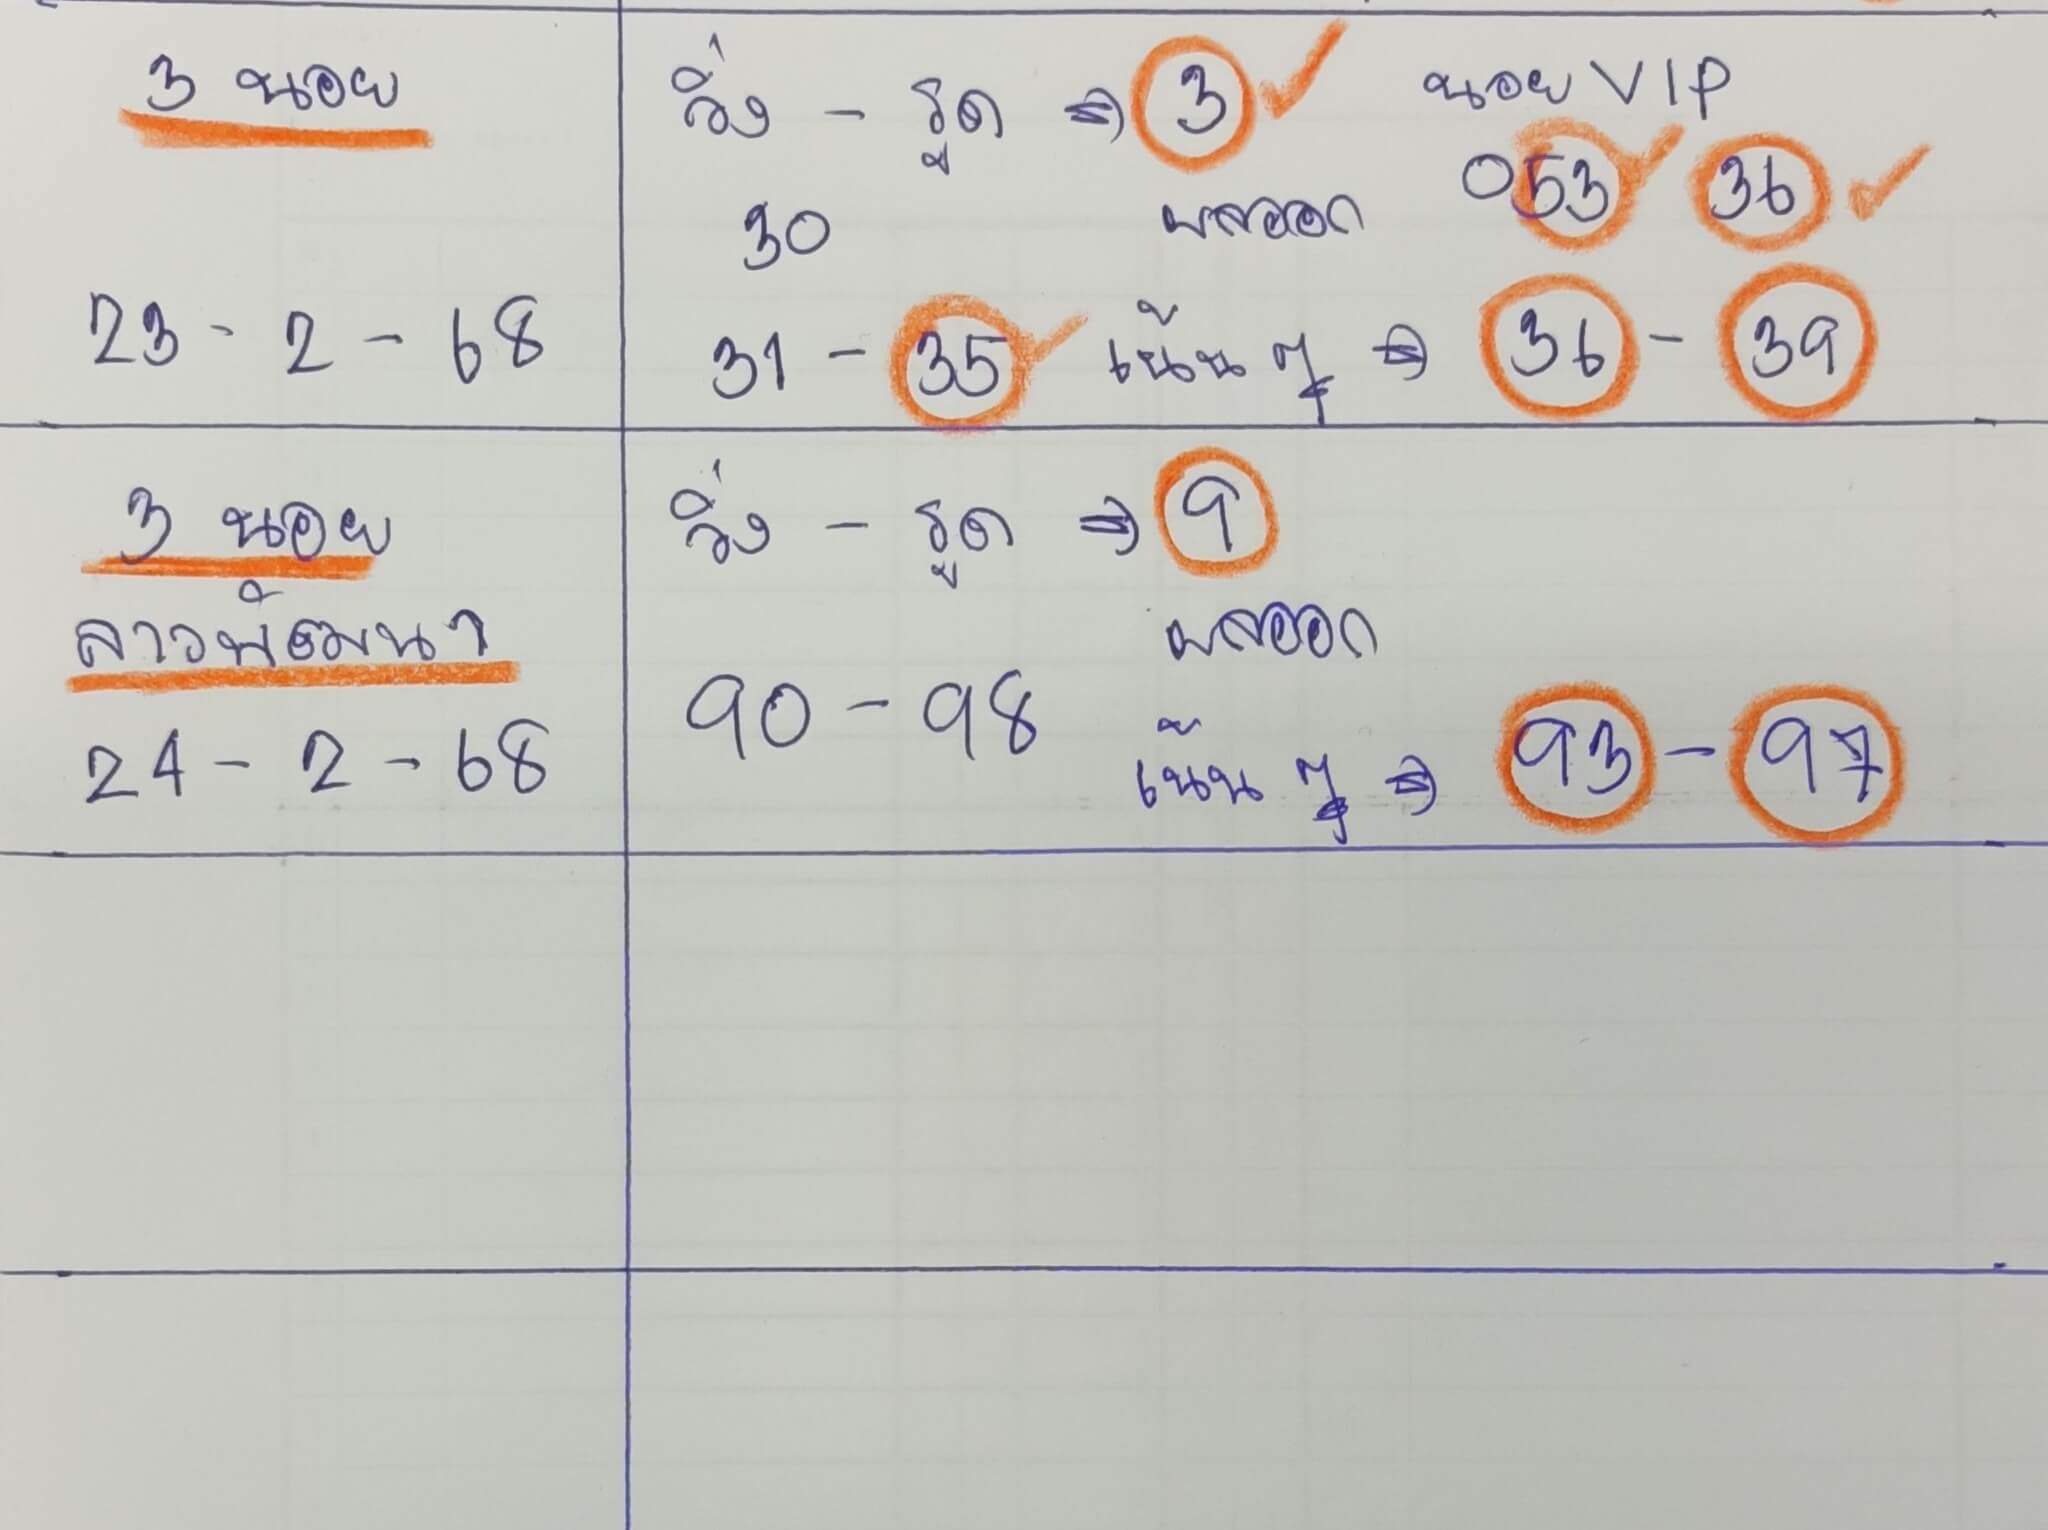 3 นอย
23 - 2 - 68
วิ่ง - รูด ⇒ 3 ✓ นอย VIP
30 ผลออก 053 ✓ 36 ✓
31 - 35 ✓ เน้น ๆ ⇒ 36 - 39
3 นอย
ลาวพัฒนา
24 - 2 - 68
วิ่ง - รูด ⇒ 9
ผลออก
90 - 98 เน้น ๆ ⇒ 93 - 97